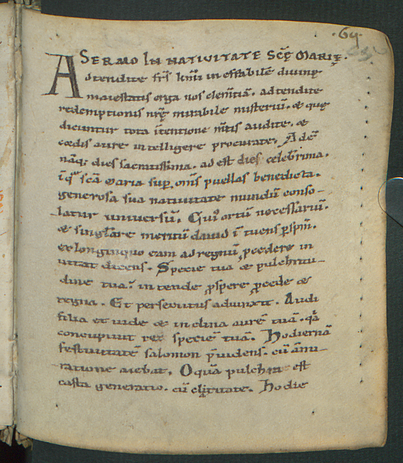 69
SERMO IN NATIVITATE SCĘ MARIĘ.
Adtendite fr̄s km̄i ineffabilē divinę
maiestatis erga nos clem̄tiā. adtendite
redemptionis nrę mirabile misteriū. & quę
dicuntur tota intentione m̄tis audite. &
cordis aure intelligere procurate. Adē
náq; dies sacratissima. adest dies celebrima.
sc̄a maria sup om̄s puellas benedicta.
generosa sua nativitate mundū conso-
latur universū. Cui' ortū necessariū.
& singłare meritū david ī tuens p sp̄m.
ex longinquo eam ad regnū pcedere in
vitat dicens. Specie tua & pulchritu-
dine tua intende pspere pcede &
regna. Et persecutus adiunxit. Audi
filia et vide & inclina aurē tuā. qa
concupivit rex speciē tuā. Hodiernā
festivitatē salomon p̄videns. cū ammi-
ratione aiebat. O quā pulchra est
casta generatio. cū claritate. Hodie